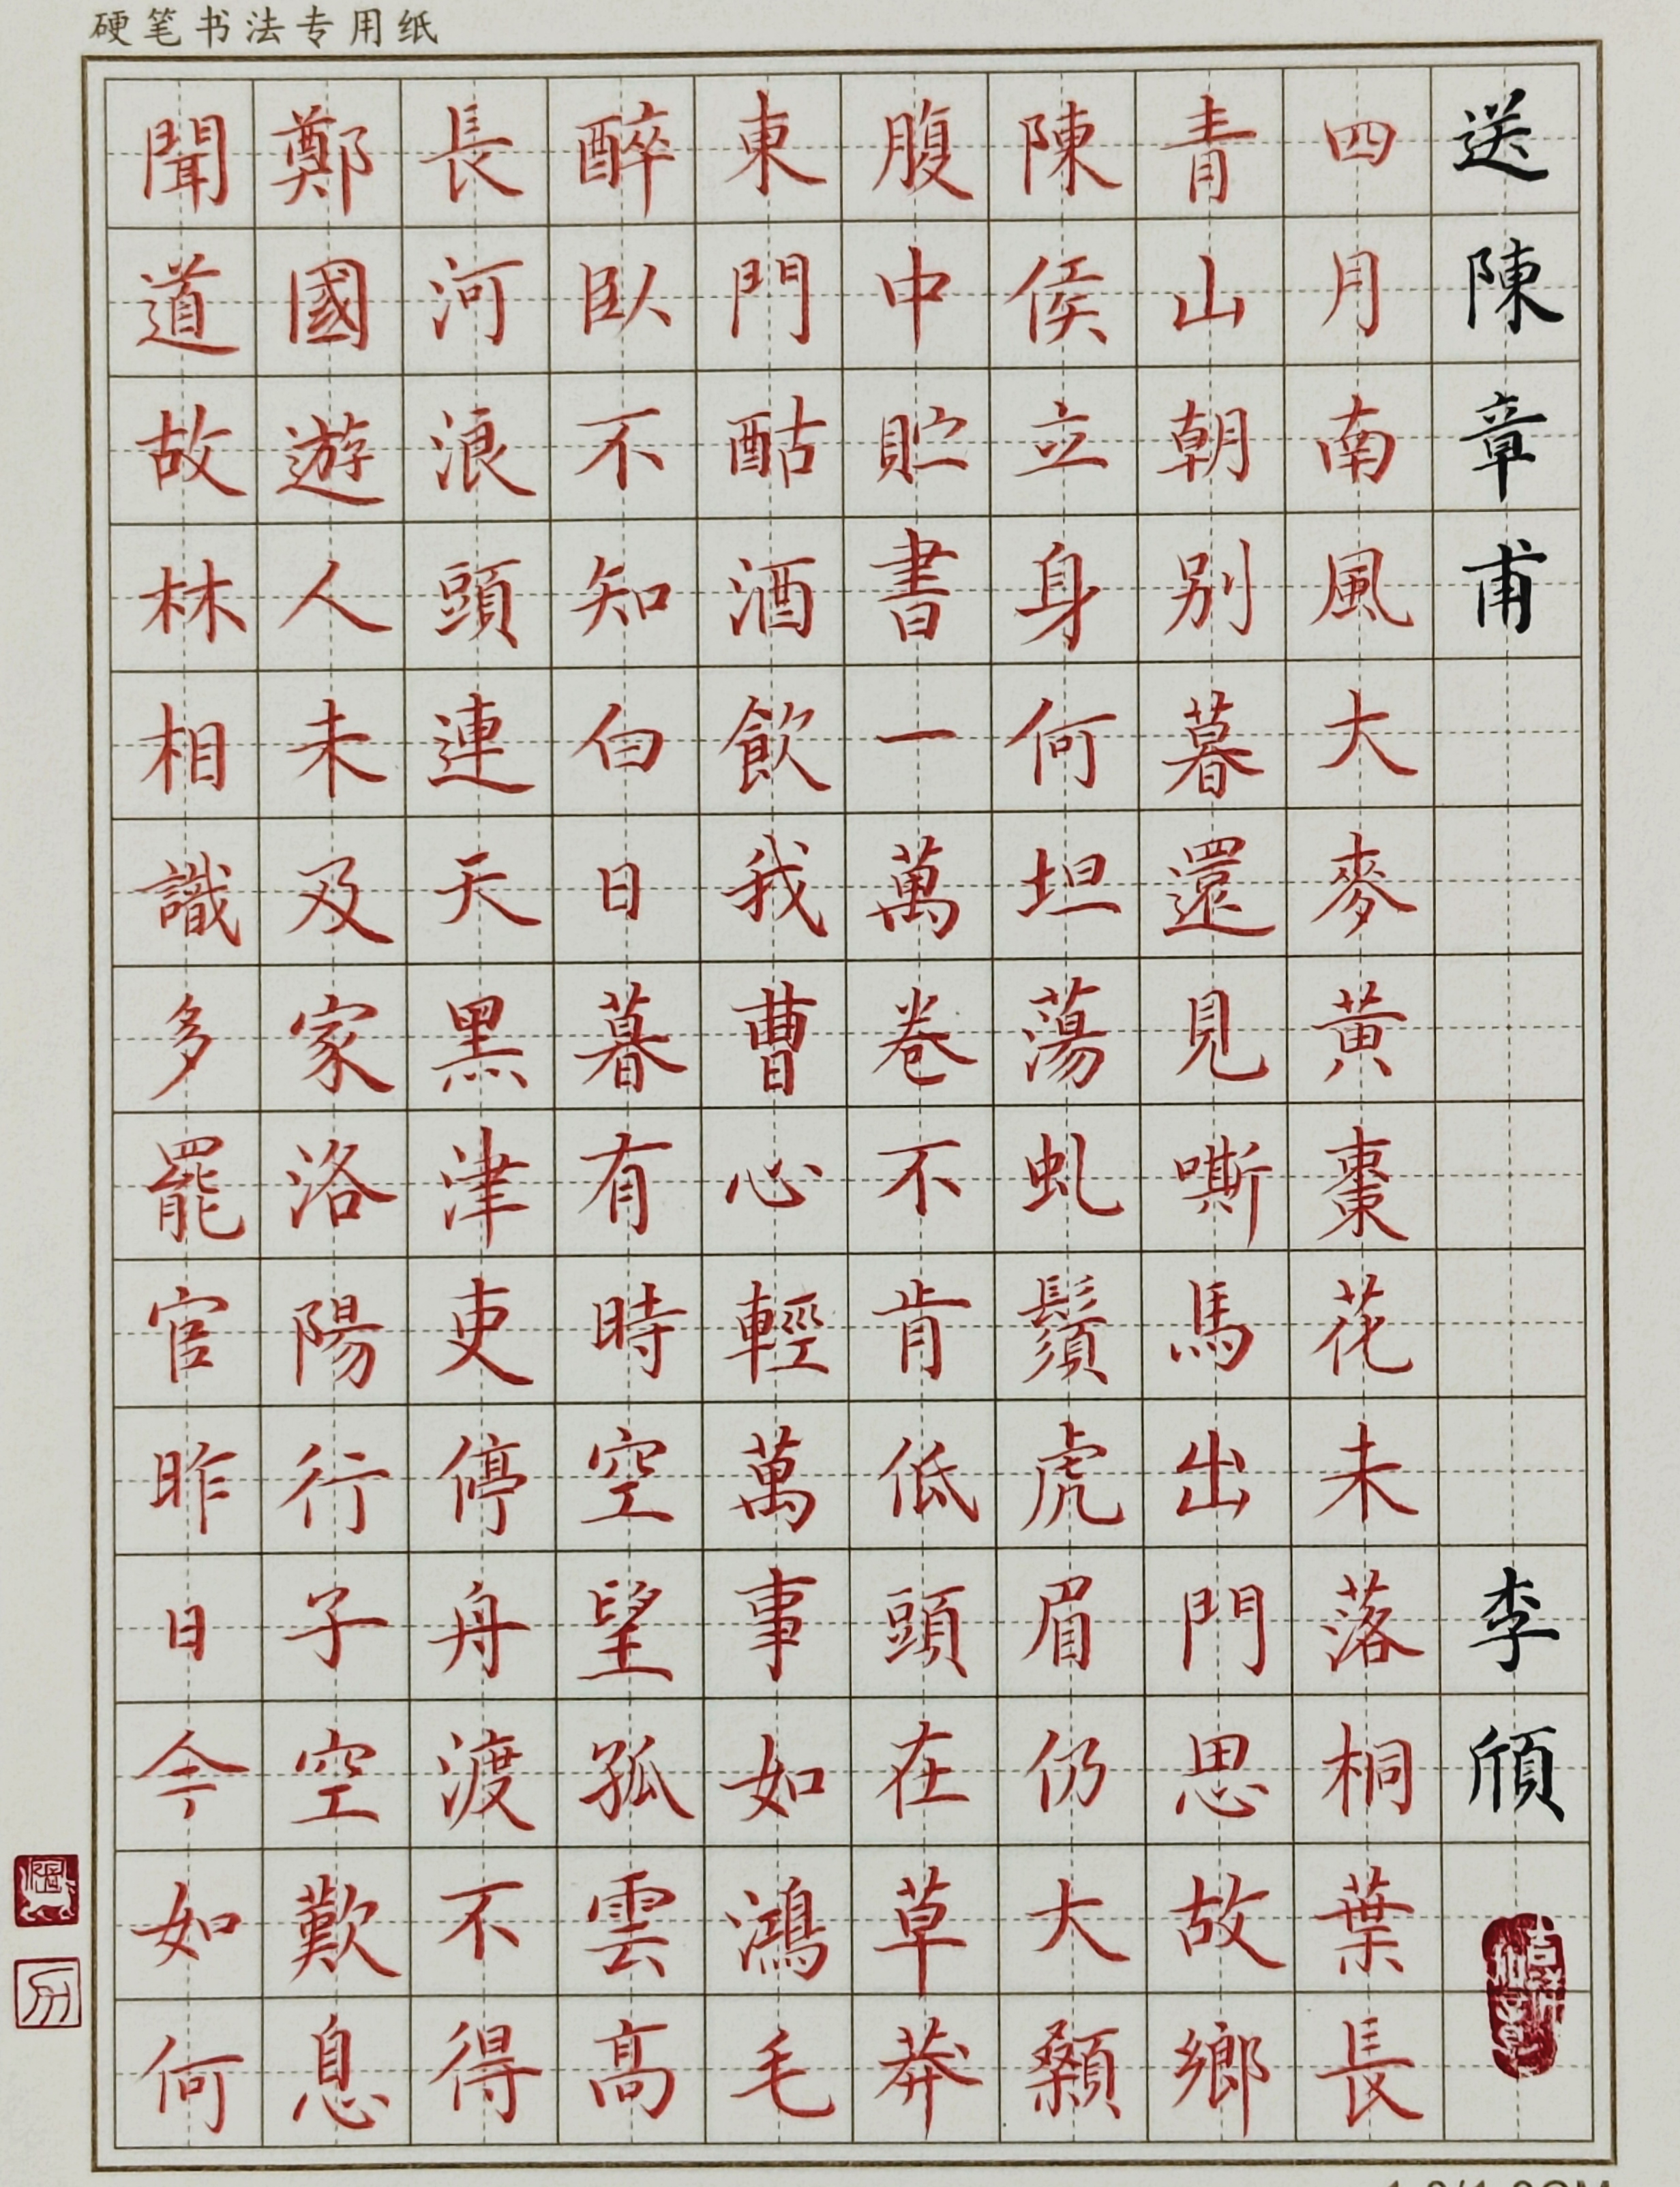 硬笔书法专用纸
送陳章甫 李頎
四月南風大麥黃棗花未落桐葉長
青山朝別暮還見嘶馬出門思故鄉
陳侯立身何坦蕩虬鬚虎眉仍大顙
腹中貯書一萬卷不肯低頭在草莽
東門酤酒飲我曹心輕萬事如鴻毛
醉臥不知白日暮有時空望孤雲高
長河浪頭連天黑津吏停舟渡不得
鄭國遊人未及家洛陽行子空歎息
聞道故林相識多罷官昨日今如何